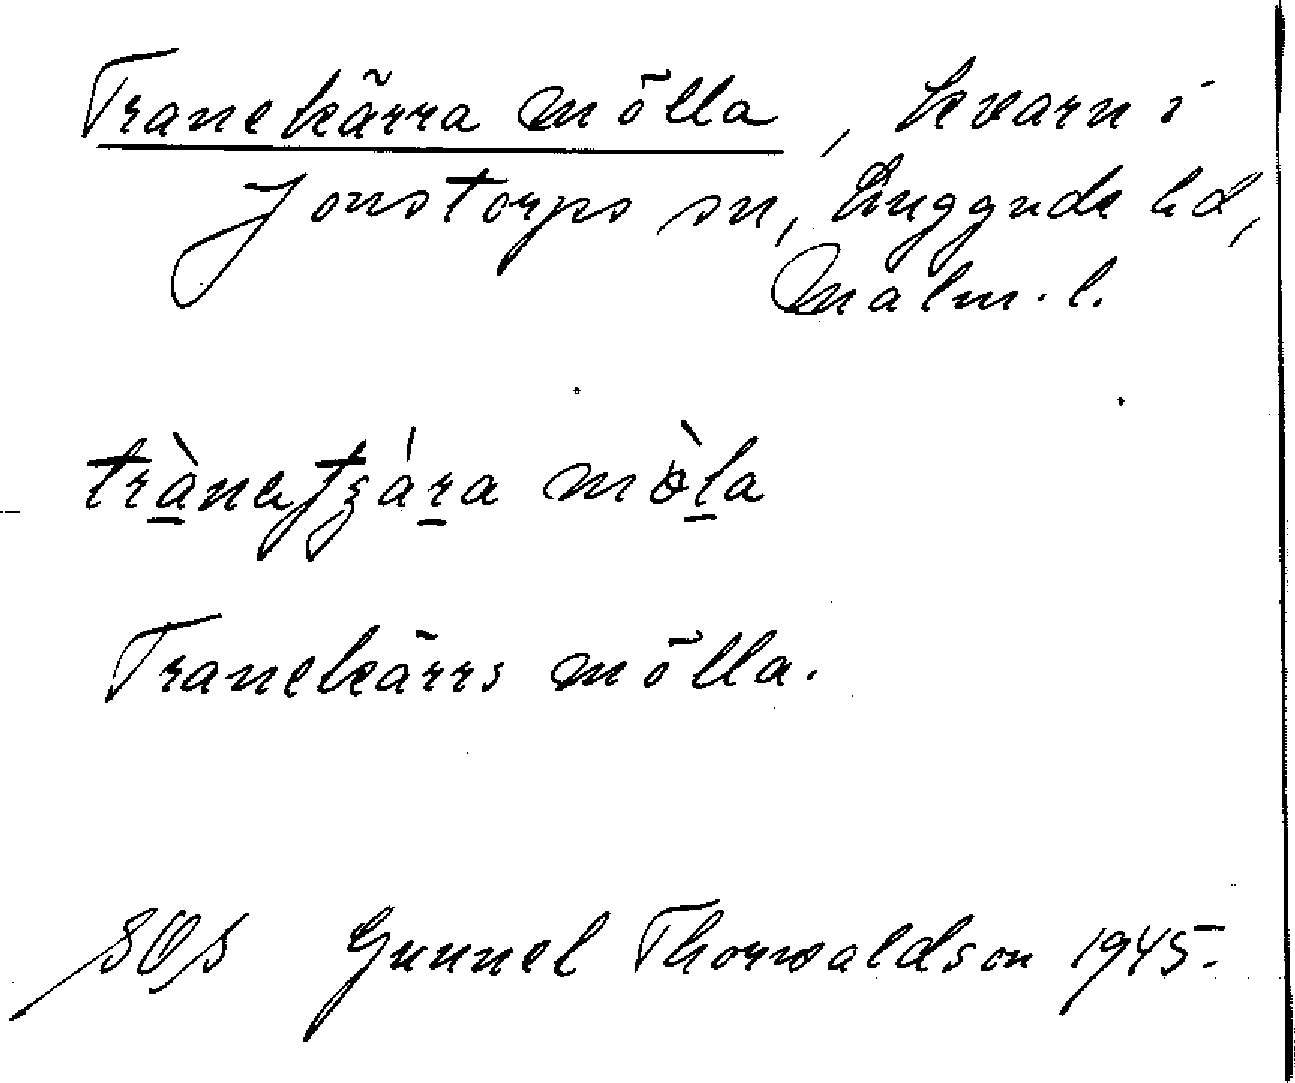 Tranekärra mölla, kvarn i
Jonstorps sn, Luggude hd,
Malm. l.
Tranekärrs mölla.
Gunnel Thorwaldson 1945.